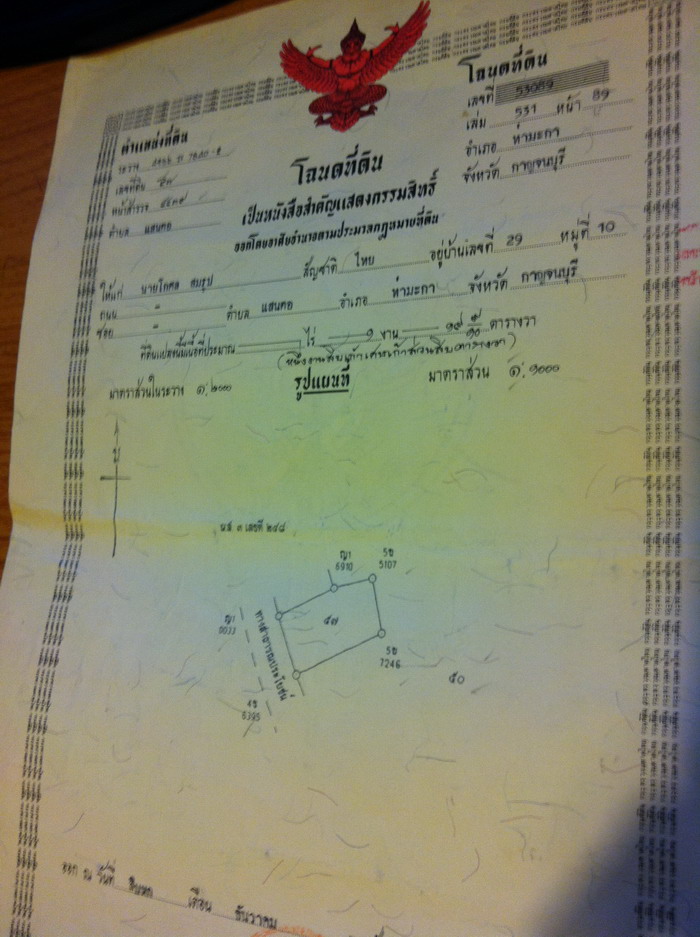 โฉนดที่ดิน
เลขที่ 53089
เล่ม 531 หน้า 89
อำเภอ ท่ามะกา
จังหวัด กาญจนบุรี
ตำแหน่งที่ดิน
ระวาง
เลขที่ดิน ๕๗
หน้าสำรวจ
ตำบล แสนตอ
โฉนดที่ดิน
เป็นหนังสือสำคัญแสดงกรรมสิทธิ์
ออกโดยอาศัยอำนาจตามประมวลกฎหมายที่ดิน
ให้แก่ นายโกศล สมรูป สัญชาติ ไทย อยู่บ้านเลขที่ 29 หมู่ที่ 10
ถนน " ตำบล แสนตอ อำเภอ ท่ามะกา จังหวัด กาญจนบุรี
ซอย "
ที่ดินแปลงนี้มีเนื้อที่ประมาณ ไร่ ๑ งาน ๑๙ ๙/๑๐ ตารางวา
(หนึ่งงานสิบเก้าเศษเก้าส่วนสิบตารางวา)
มาตราส่วนในระวาง ๑:๒๐๐๐ รูปแผนที่ มาตราส่วน ๑:๑๐๐๐
น
น.ส. ๓ เลขที่ ๒๔๘
ญา 6910
5ข 5107
ญา 0033
ทางสาธารณประโยชน์
๕๗
5ข 7246
๕๐
4ข 6395
ออก ณ วันที่ สิบหก เดือน ธันวาคม